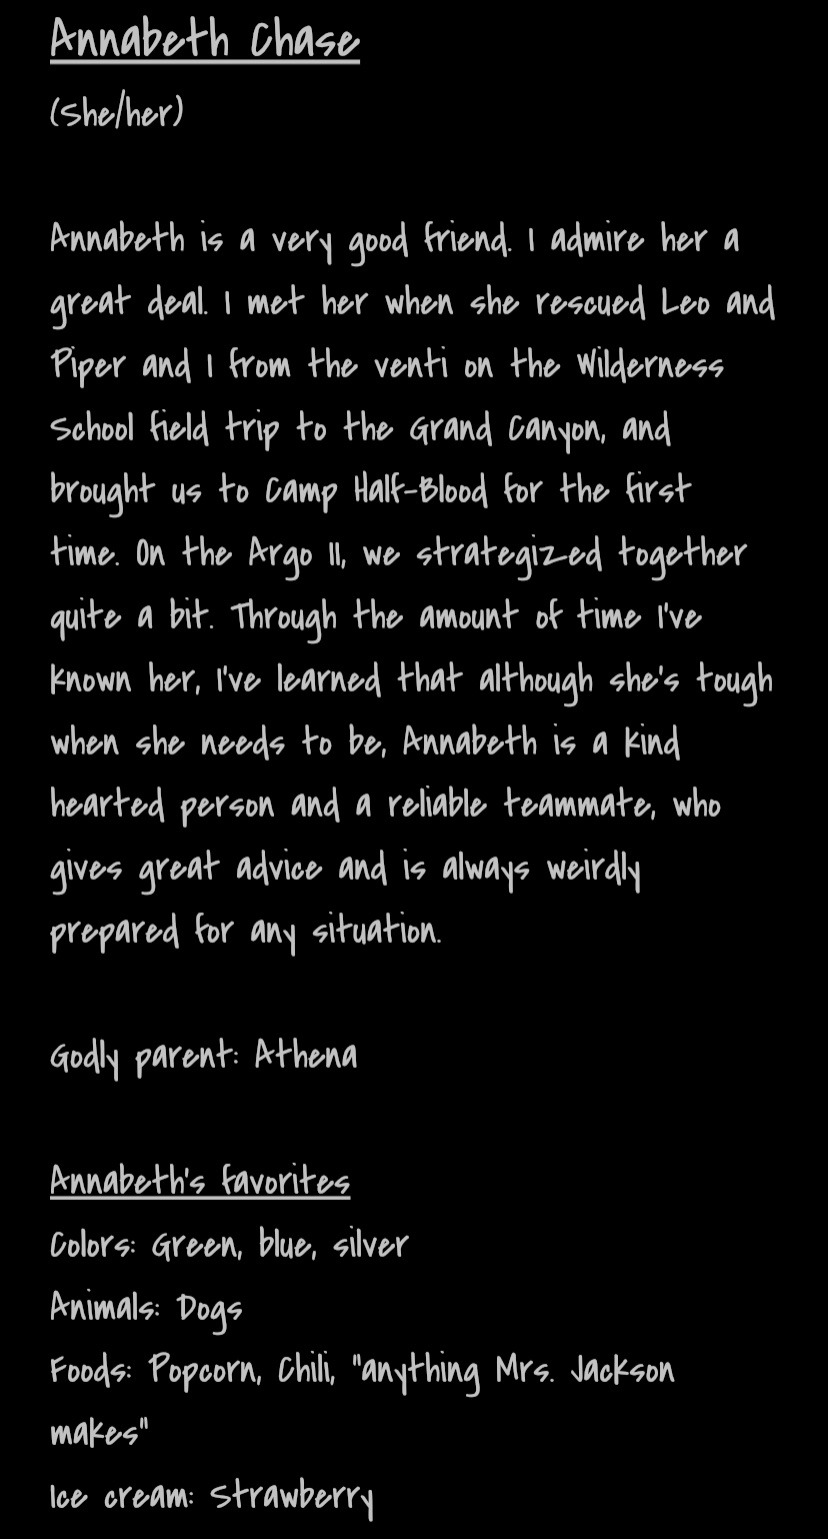 Annabeth Chase
(She/her)
Annabeth is a very good friend. I admire her a
great deal. I met her when she rescued Leo and
Piper and I from the venti on the Wilderness
School field trip to the Grand Canyon, and
brought us to Camp Half-Blood for the first
time. On the Argo II, we strategized together
quite a bit. Through the amount of time I've
known her, I've learned that although she's tough
when she needs to be, Annabeth is a kind
hearted person and a reliable teammate, who
gives great advice and is always weirdly
prepared for any situation.
Godly parent: Athena
Annabeth's favorites
Colors: Green, blue, silver
Animals: Dogs
Foods: Popcorn, Chili, "anything Mrs. Jackson
makes"
Ice cream: Strawberry